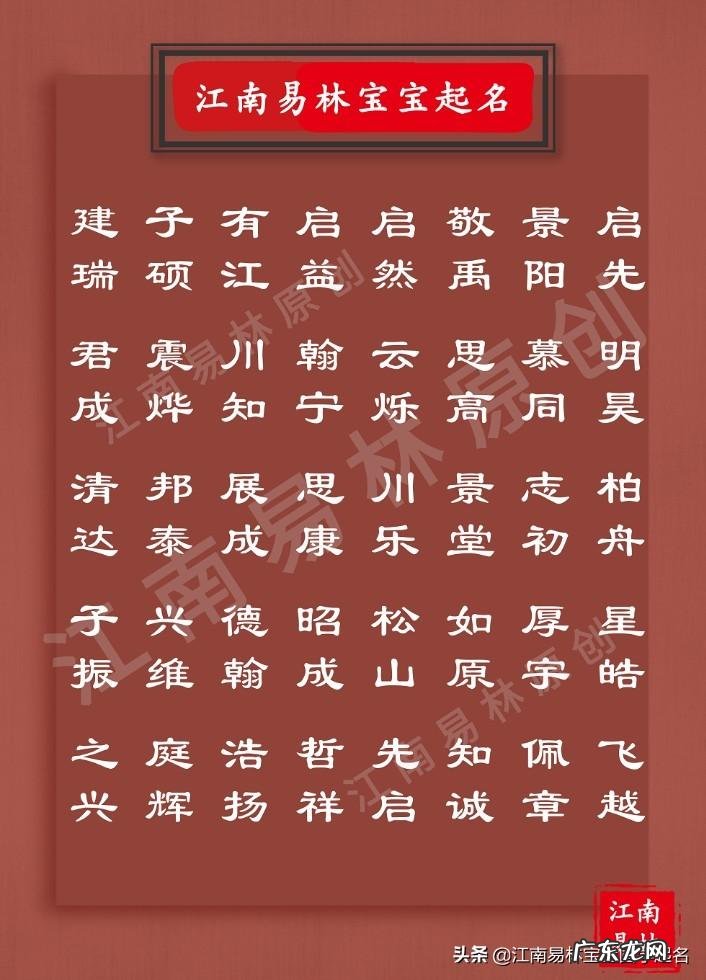 江南易林宝宝起名
建 子 有 启 启 敬 景 启
瑞 硕 江 益 然 禹 阳 先
君 震 川 翰 云 思 慕 明
成 烨 知 宁 烁 高 同 昊
清 邦 展 思 川 景 志 柏
达 泰 成 康 乐 堂 初 舟
子 兴 德 昭 松 如 厚 星
振 维 翰 成 山 原 宇 皓
之 庭 浩 哲 先 知 佩 飞
兴 辉 扬 祥 启 诚 章 越
江南易林原创
江南易林原创
江南易林原创
江南
头条 @江南易林宝
起名
广东龙网